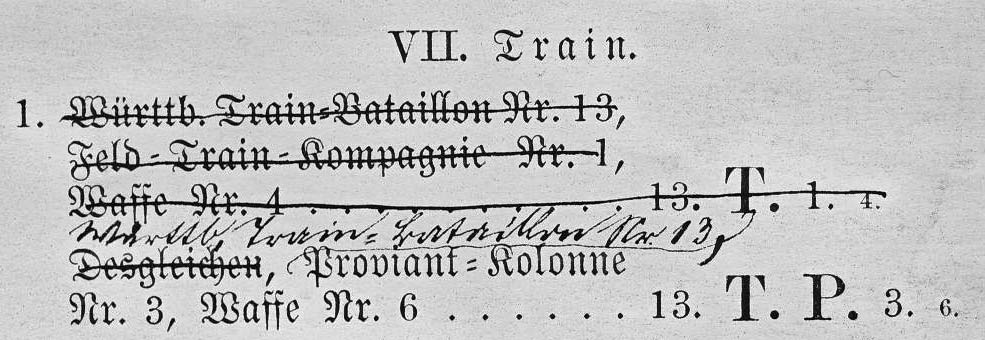 VII. Train.
1. Württb. Train-Bataillon Nr. 13,
Feld-Train-Kompagnie Nr. 1,
Waffe Nr. 4 . . . . . . . . . . 13. T. 1. 4.
Württb. Train-Bataillon Nr 13,
Desgleichen, Proviant-Kolonne
Nr. 3, Waffe Nr. 6 . . . . . . 13. T. P. 3. 6.